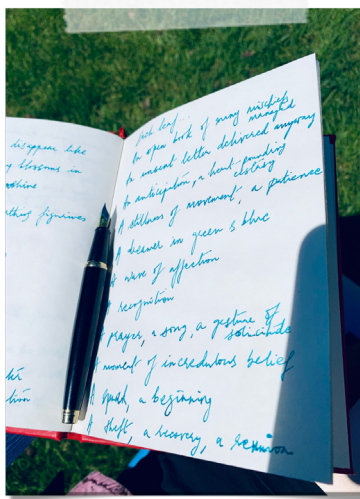 disappear like
blossoms in
Each leaf
An open book of many mischiefs
managed
An unsent letter delivered anyway
An anticipation, a heart pounding
ecstasy
A stillness of movement, a patience
A dreamer in green & blue
A wave of affection
A recognition
A prayer, a song, a gesture of
solicitude
A moment of incredulous belief
A quest, a beginning
A theft, a recovery, a reunion